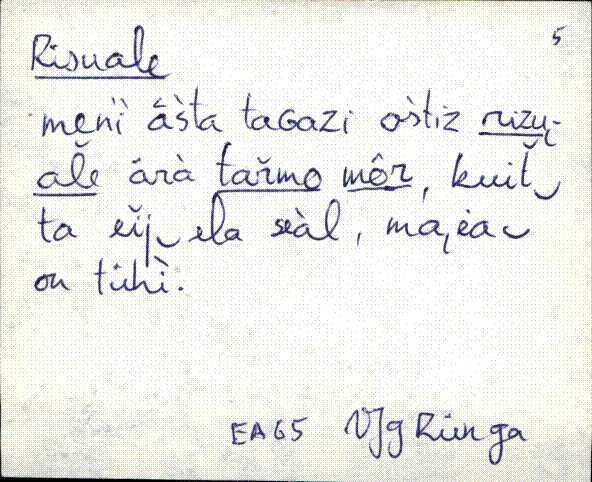 5
Risuale
menìì ästa taGazi ostiz rizu̯-
ale ärà tarmo môr, kuit
ta eij ela seàl, maea
on tühì.
EA65 VJg Riinga